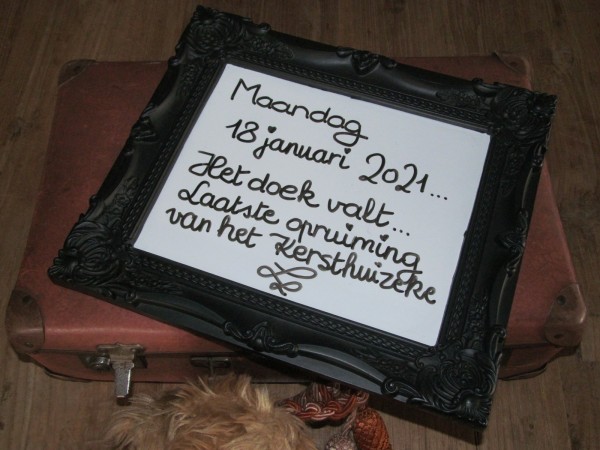 Maandag
18 januari 2021...
Het doek valt...
Laatste opruiming
van het Kersthuizeke